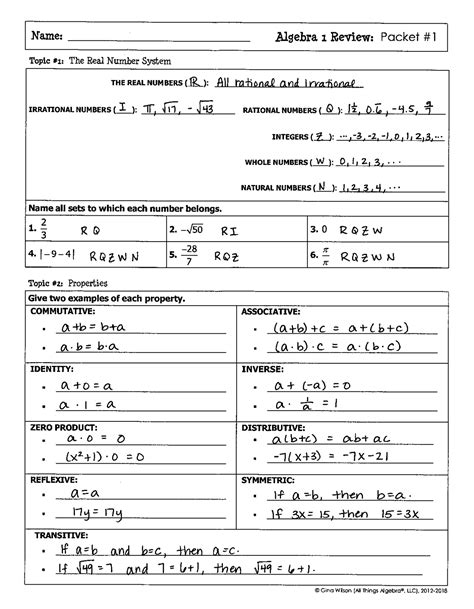 Name: Algebra 1 Review: Packet #1
Topic #1: The Real Number System
THE REAL NUMBERS ( R ): All rational and Irrational
IRRATIONAL NUMBERS ( I ): π, √17, -√43 RATIONAL NUMBERS ( Q ): 1½, 0.6̅, -4.5,
INTEGERS ( Z ): ..., -3, -2, -1, 0, 1, 2, 3, ...
WHOLE NUMBERS ( W ): 0, 1, 2, 3, ...
NATURAL NUMBERS ( N ): 1, 2, 3, 4, ...
Name all sets to which each number belongs.
1. 2/3 R Q 2. -√50 R I 3. 0 R Q Z W
4. |-9-4| R Q Z W N 5. -28/7 R Q Z 6. π/π R Q Z W N
Topic #2: Properties
Give two examples of each property.
COMMUTATIVE: ASSOCIATIVE:
• a+b = b+a • (a+b)+c = a+(b+c)
• a·b = b·a • (a·b)·c = a·(b·c)
IDENTITY: INVERSE:
• a+0 = a • a + (-a) = 0
• a·1 = a • a · 1/a = 1
ZERO PRODUCT: DISTRIBUTIVE:
• a·0 = 0 • a(b+c) = ab+ac
• (x²+1)·0 = 0 • -7(x+3) = -7x-21
REFLEXIVE: SYMMETRIC:
• a=a • If a=b, then b=a.
• 17y = 17y • If 3x = 15, then 15 = 3x
TRANSITIVE:
• If a=b and b=c, then a=c.
• If √49 = 7 and 7 = 6+1, then √49 = 6+1.
© Gina Wilson (All Things Algebra®, LLC), 2012-2018